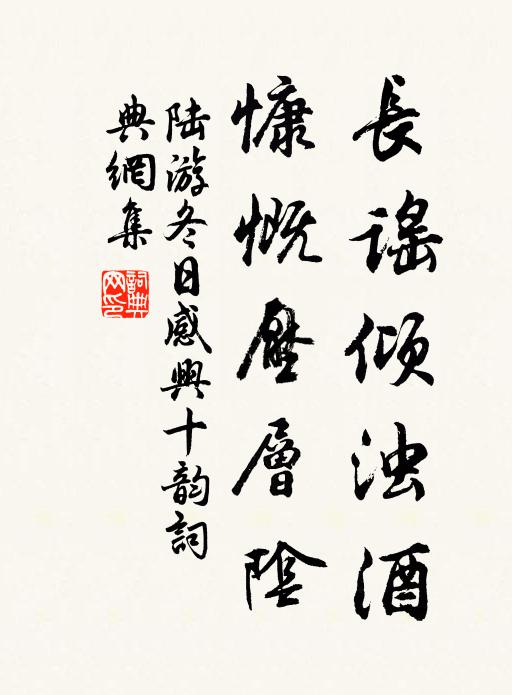 長謡傾濁酒
慷慨壓層陰
陆游冬日感興十韵詞
典網集
詞典
网印